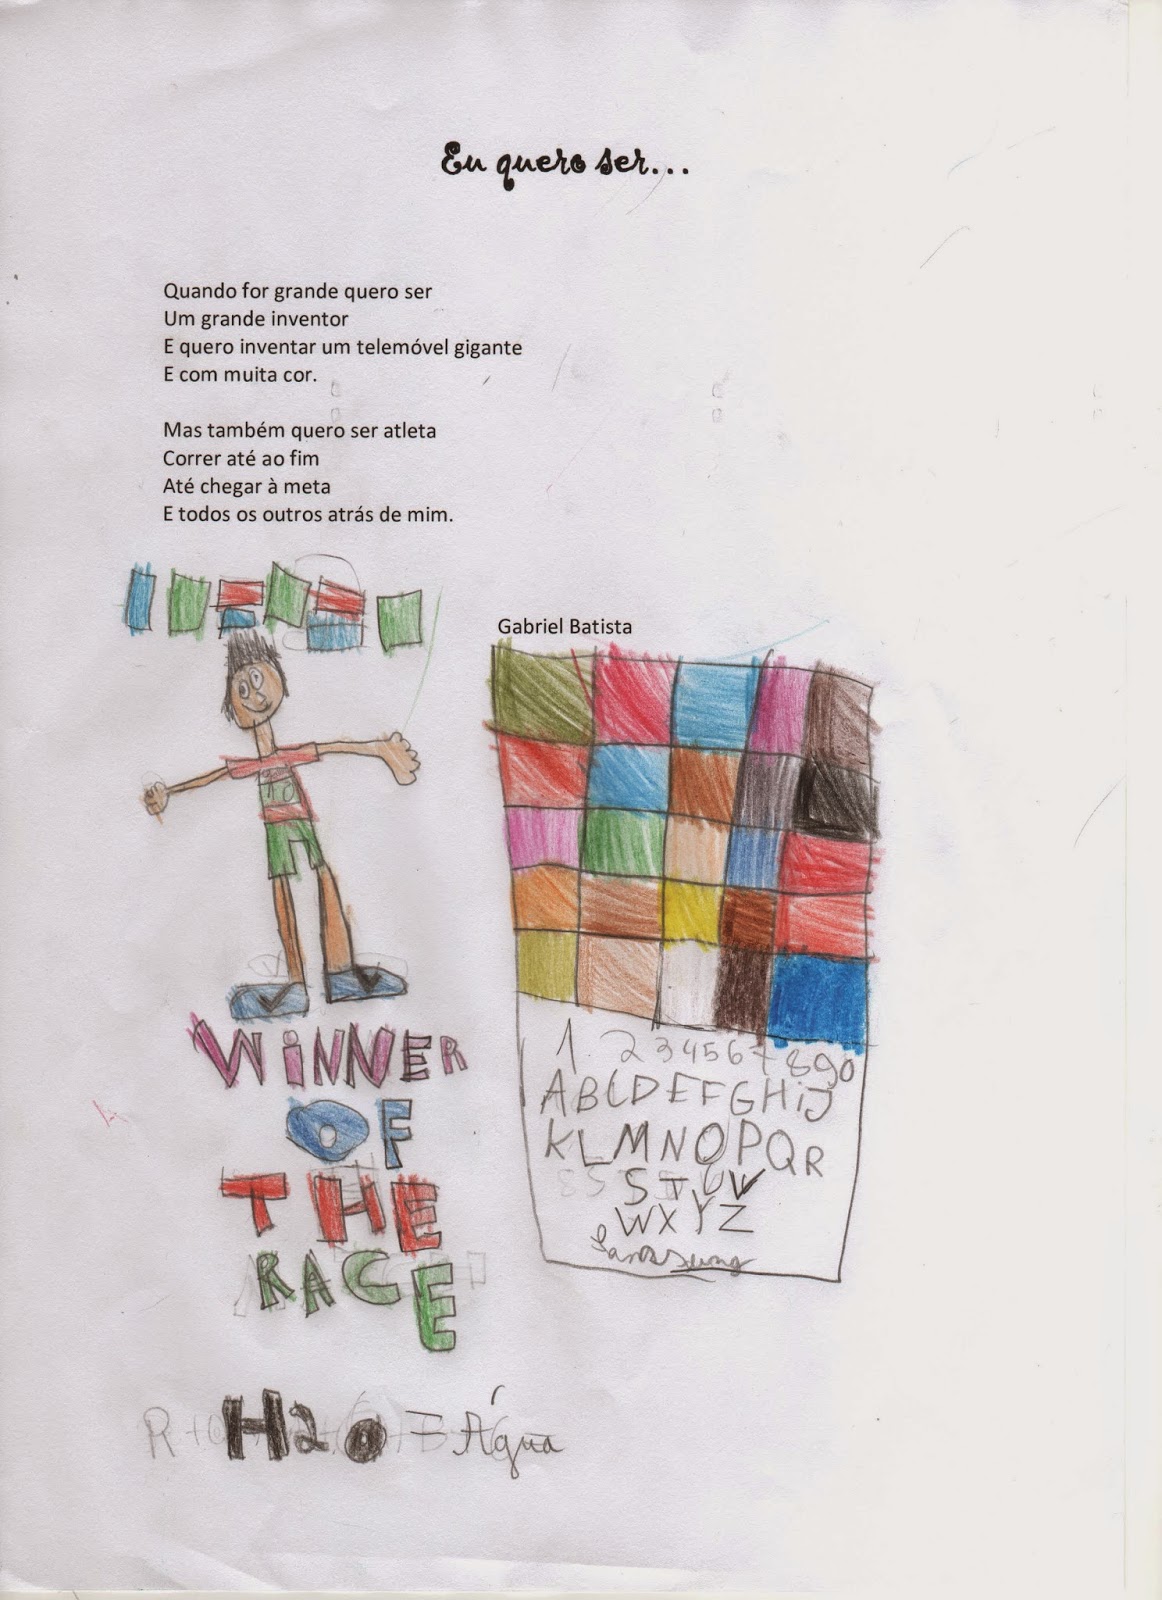 Eu quero ser...
Quando for grande quero ser
Um grande inventor
E quero inventar um telemóvel gigante
E com muita cor.
Mas também quero ser atleta
Correr até ao fim
Até chegar à meta
E todos os outros atrás de mim.
Gabriel Batista
WiNNER
OF
THE
RACE
H2O = Água
1 2 3 4 5 6 7 8 9 0
ABCDEFGHiJ
KLMNOPQR
STUV
WXYZ